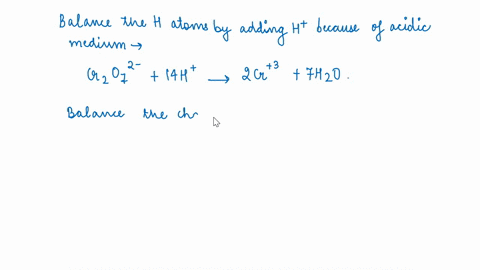 Balance the H atoms by adding H⁺ because of acidic
medium →
Cr₂O₇²⁻ + 14H⁺ → 2Cr⁺³ + 7H₂O.
Balance the ch